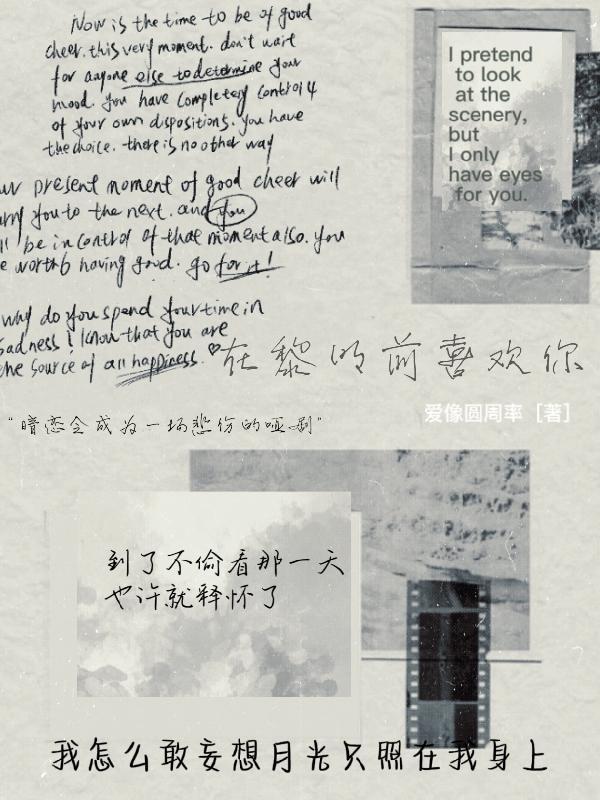 Now is the time to be of good
cheer. this very moment. don't wait
for anyone else to determine your
mood. you have completely control
of your own dispositions. you have
the choice. there is no other way
present moment of good cheer will
you to the next. and you
be in control of that moment also. you
worth having good. go for it!
why do you spend your time in
sadness! know that you are
the source of all happiness.
I pretend
to look
at the
scenery,
but
I only
have eyes
for you.
在黎明前喜欢你
爱像圆周率［著］
“暗恋会成为一场悲伤的哑剧”
到了不偷看那一天
也许就释怀了
我怎么敢妄想月光只照在我身上